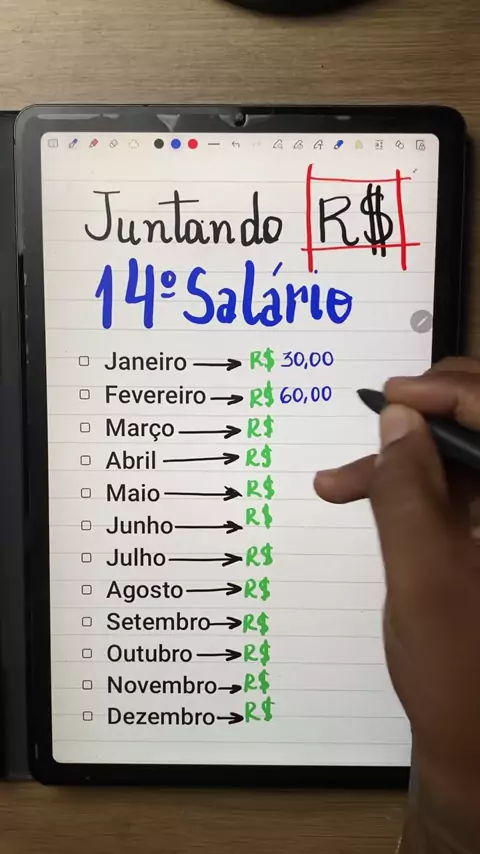 Juntando R$
14º Salário
Janeiro → R$ 30,00
Fevereiro → R$ 60,00
Março → R$
Abril → R$
Maio → R$
Junho → R$
Julho → R$
Agosto → R$
Setembro → R$
Outubro → R$
Novembro → R$
Dezembro → R$